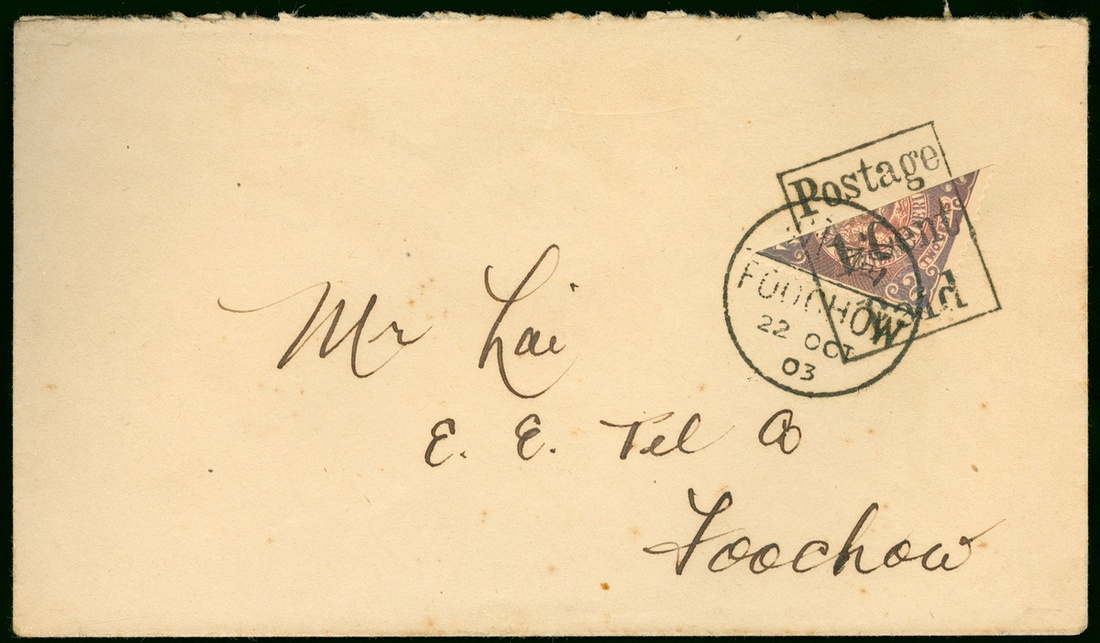 Postage
1 Cent
Paid
FOOCHOW
22 OCT
03
Mr Lai
E. E. Tel Co
Foochow